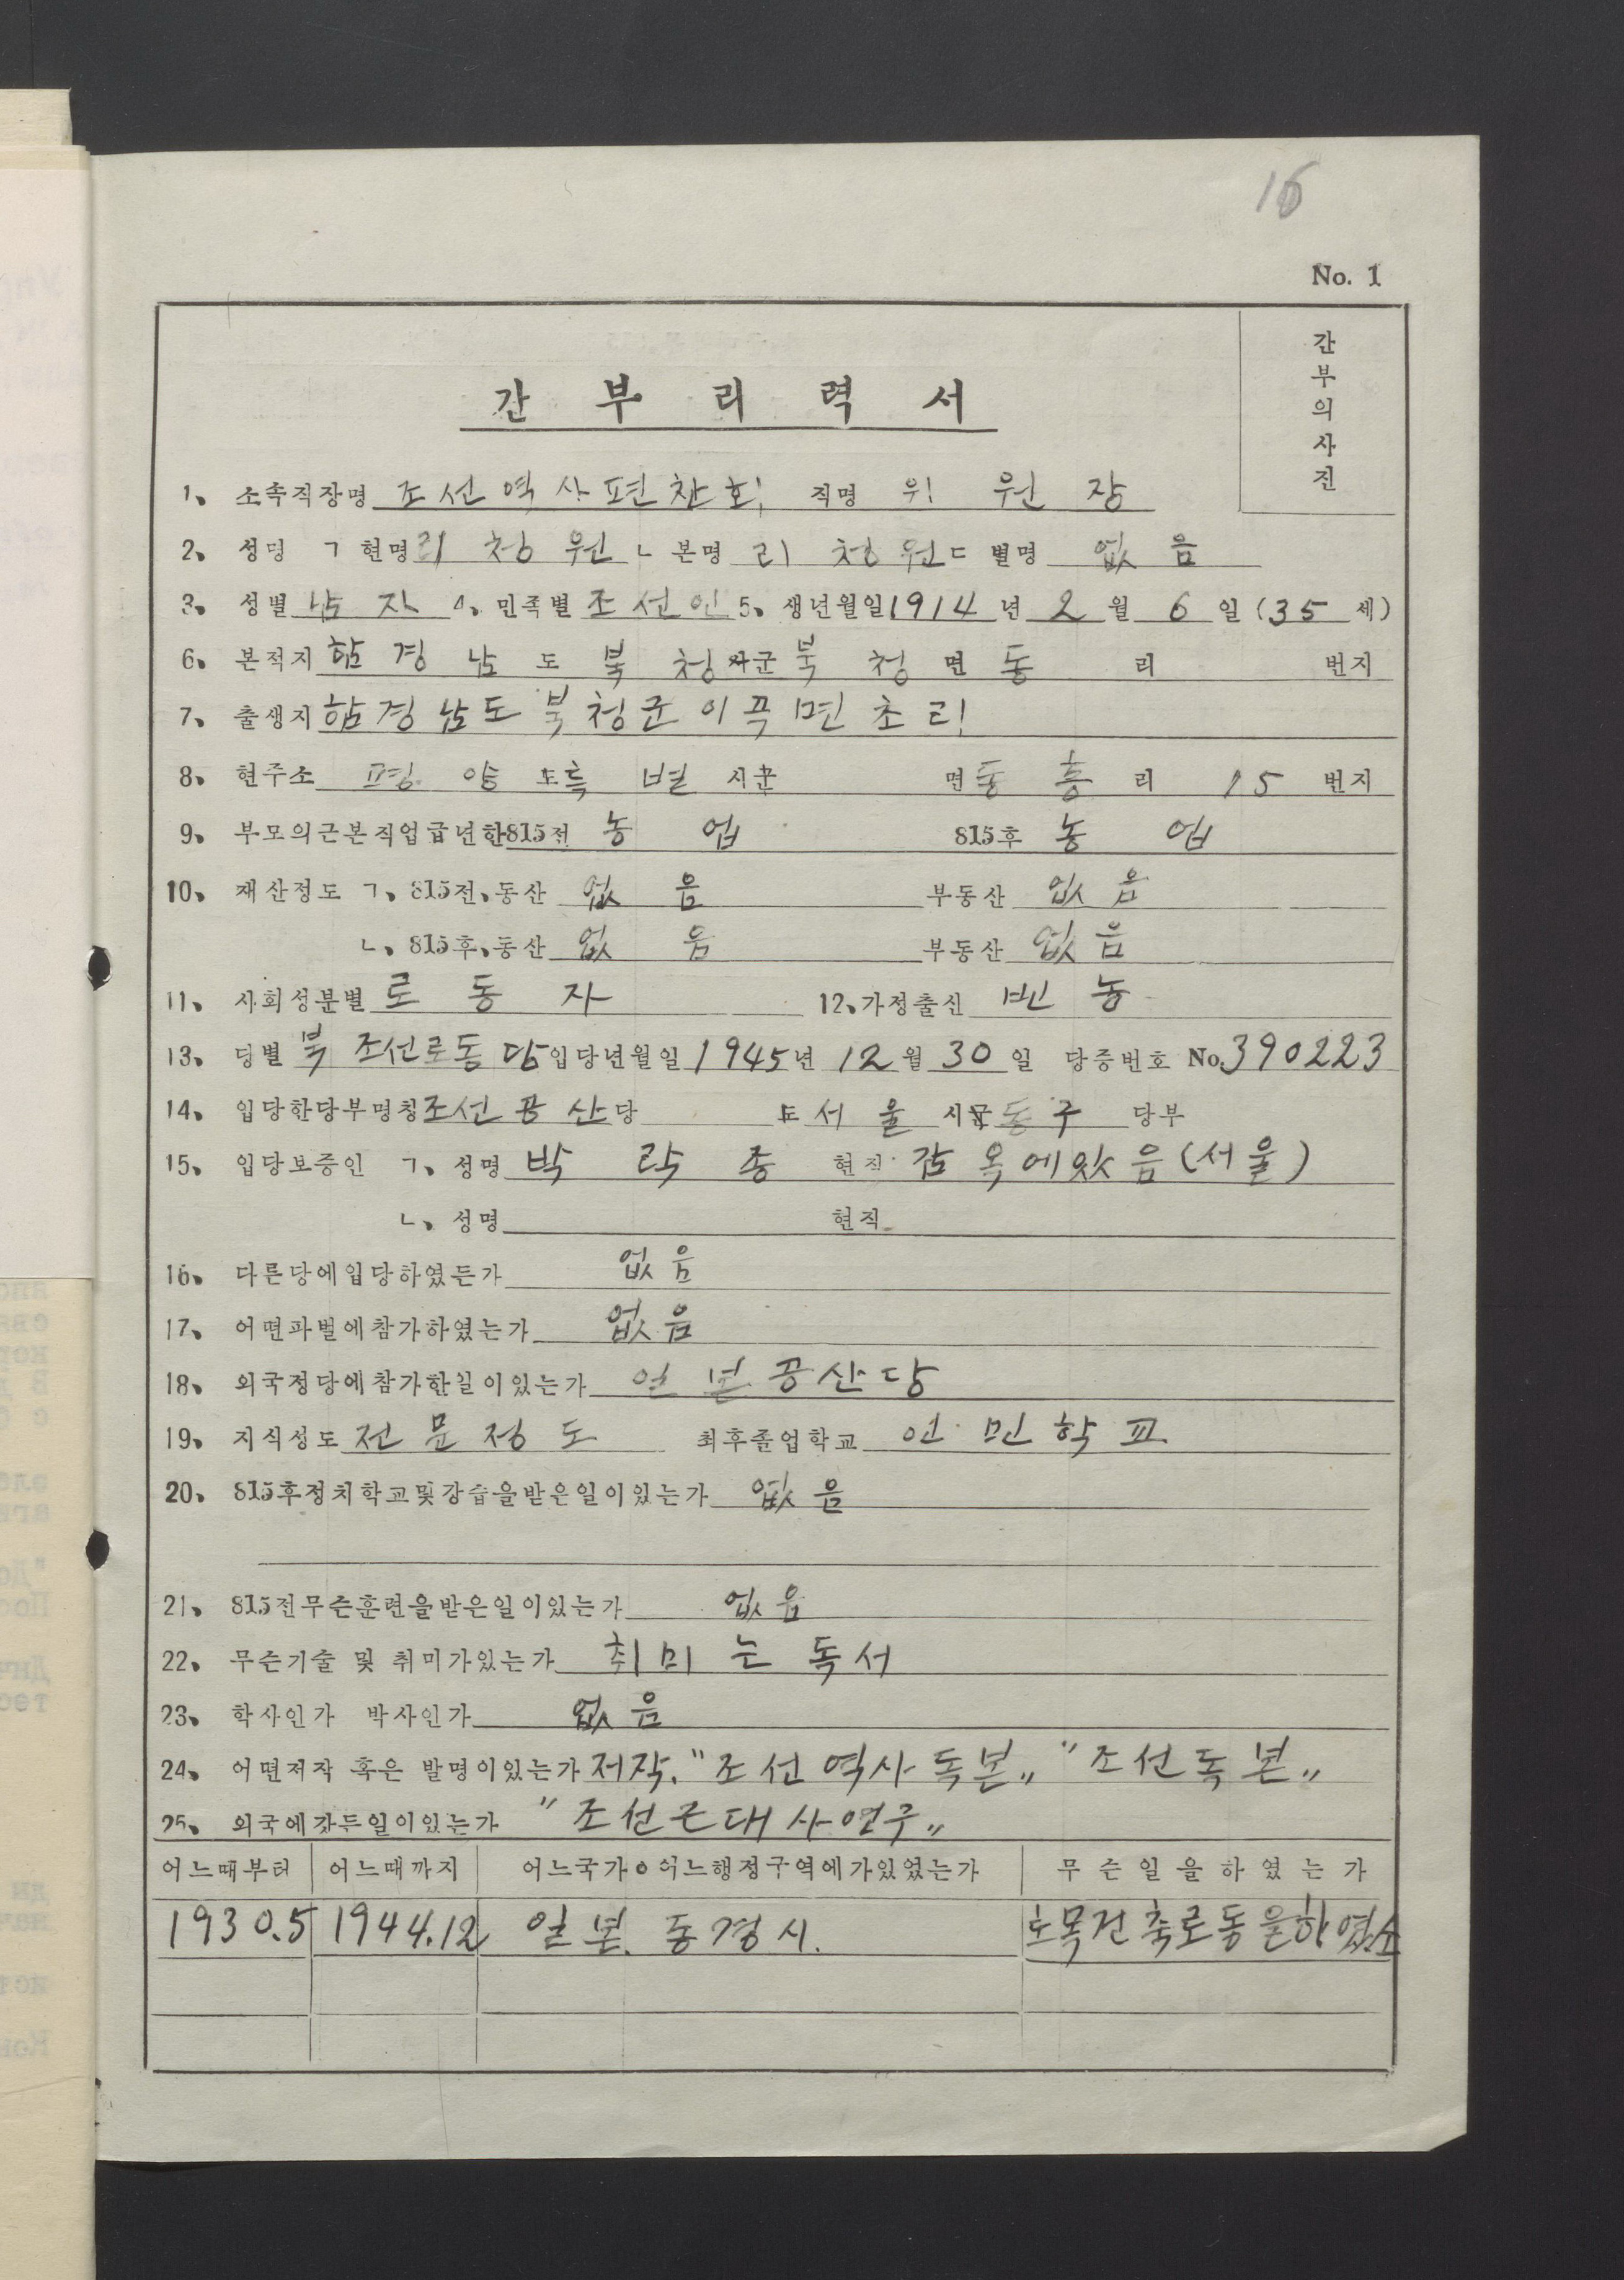 16
No. 1
간부의사진
간 부 리 력 서
1、 소속직장명 조선역사편찬회 직명 위원장
2、 성명 ㄱ 현명 리청원 ㄴ 본명 리청원 ㄷ 별명 없음
3、 성별 남자 4、 민족별 조선인 5、 생년월일 1914 년 2 월 6 일 (35 세)
6、 본적지 함경남 도 북청 군 북청 면 동 리 번지
7、 출생지 함경남도북청군이곡면초리
8、 현주소 평양 특별 시 면 동흥 리 15 번지
9、 부모의근본직업급년한 815전 농업 815후 농업
10、 재산정도 ㄱ、815전、동산 없음 부동산 없음
ㄴ、815후、동산 없음 부동산 없음
11、 사회성분별 로동자 12、가정출신 빈농
13、 당별 북조선로동당 입당년월일 1945 년 12 월 30 일 당증번호 No.390223
14、 입당한당부명칭 조선공산 당 도 서울 시 동구 당부
15、 입당보증인 ㄱ、성명 박락종 현직 감옥에있음(서울)
ㄴ、성명 현직
16、 다른당에입당하였든가 없음
17、 어떤파벌에참가하였는가 없음
18、 외국정당에참가한일이있는가 일본공산당
19、 지식정도 전문정도 최후졸업학교 인민학교
20、 815후정치학교및강습을받은일이있는가 없음
21、 815전무슨훈련을받은일이있는가 없음
22、 무슨기술 및 취미가있는가 취미는독서
23、 학사인가 박사인가 없음
24、 어떤저작 혹은 발명이있는가 저작. "조선역사독본" "조선독본"
25、 외국에갔든일이있는가 "조선근대사연구"
어느때부터 어느때까지 어느국가о어느행정구역에가있었는가 무슨일을하였는가
1930.5 1944.12 일본. 동경시. 토목건축로동을하였소